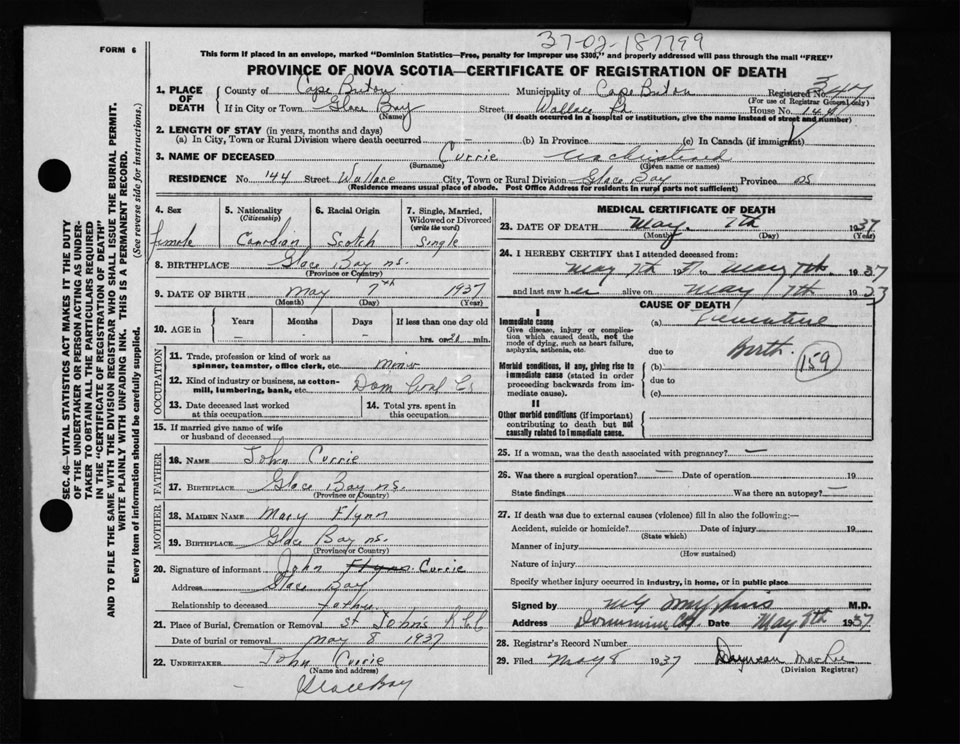 37-02-187799
FORM 6
This form if placed in an envelope, marked "Dominion Statistics—Free, penalty for improper use $300," and properly addressed will pass through the mail "FREE"
PROVINCE OF NOVA SCOTIA—CERTIFICATE OF REGISTRATION OF DEATH
1. PLACE OF DEATH
County of Cape Breton Municipality of Cape Breton Registered No.
(For use of Registrar General only)
If in City or Town Glace Bay Street Wallace House No. 144
(Name) (If death occurred in a hospital or institution, give the name instead of street and number)
2. LENGTH OF STAY (in years, months and days)
(a) In City, Town or Rural Division where death occurred – (b) In Province (c) In Canada (if immigrant)
3. NAME OF DECEASED Currie
(Surname) (Given name or names)
RESIDENCE No. 144 Street Wallace City, Town or Rural Division Glace Bay Province ns
(Residence means usual place of abode. Post Office Address for residents in rural parts not sufficient)
4. Sex female
5. Nationality (Citizenship) Canadian
6. Racial Origin Scotch
7. Single, Married, Widowed or Divorced (write the word) Single
8. BIRTHPLACE Glace Bay ns.
(Province or Country)
9. DATE OF BIRTH May 7th 1937
(Month) (Day) (Year)
10. AGE in Years Months Days If less than one day old
hrs. or min.
OCCUPATION
11. Trade, profession or kind of work as spinner, teamster, office clerk, etc. Miner
12. Kind of industry or business, as cotton-mill, lumbering, bank, etc. Dom Coal Co
13. Date deceased last worked at this occupation
14. Total yrs. spent in this occupation
15. If married give name of wife or husband of deceased
FATHER
16. NAME John Currie
17. BIRTHPLACE Glace Bay ns.
(Province or Country)
MOTHER
18. MAIDEN NAME Mary Flynn
19. BIRTHPLACE Glace Bay ns.
(Province or Country)
20. Signature of informant John Flynn Currie
Address Glace Bay
Relationship to deceased father
21. Place of Burial, Cremation or Removal St John's
Date of burial or removal May 8 1937
22. UNDERTAKER John Currie
(Name and address)
Glace Bay
MEDICAL CERTIFICATE OF DEATH
23. DATE OF DEATH May 7th 1937
(Month) (Day) (Year)
24. I HEREBY CERTIFY that I attended deceased from:
May 7th to May 7th 1937
and last saw her alive on May 7th 19
CAUSE OF DEATH
I
Immediate cause (a) Premature
Give disease, injury or complication which caused death, not the mode of dying, such as heart failure, asphyxia, asthenia, etc.
due to Birth. 159
Morbid conditions, if any, giving rise to immediate cause (stated in order proceeding backwards from immediate cause).
(b)
due to
(c)
II
Other morbid conditions (if important) contributing to death but not causally related to immediate cause.
25. If a woman, was the death associated with pregnancy? –
26. Was there a surgical operation? – Date of operation 19
State findings Was there an autopsy? –
27. If death was due to external causes (violence) fill in also the following:—
Accident, suicide or homicide? Date of injury 19
(State which)
Manner of injury
(How sustained)
Nature of injury
Specify whether injury occurred in industry, in home, or in public place
Signed by M.D.
Address Date May 8th 1937
28. Registrar's Record Number
29. Filed May 8 1937
(Division Registrar)
SEC. 46—VITAL STATISTICS ACT MAKES IT THE DUTY
OF THE UNDERTAKER OR PERSON ACTING AS UNDER-
TAKER TO OBTAIN ALL THE PARTICULARS REQUIRED
IN THE "CERTIFICATE OF REGISTRATION OF DEATH"
AND TO FILE THE SAME WITH THE DIVISION REGISTRAR WHO SHALL ISSUE THE BURIAL PERMIT.
WRITE PLAINLY WITH UNFADING INK. THIS IS A PERMANENT RECORD.
Every item of information should be carefully supplied. (See reverse side for instructions.)